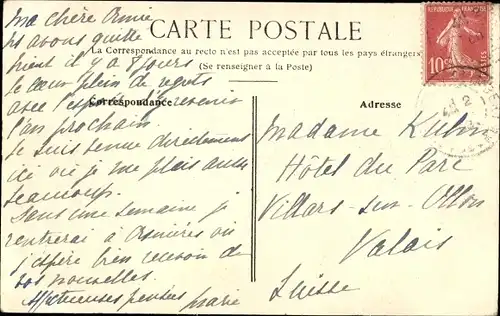 CARTE POSTALE
La Correspondance au recto n'est pas acceptée par tous les pays étrangers
(Se renseigner à la Poste)
Correspondance
Adresse
RÉPUBLIQUE FRANÇAISE
10
Ma chère Amie
avons quitté
il y a 8 jours
le cœur plein de regrets
avec l'espoir d'y revenir
l'an prochain
Je suis venue directement
ici où je me plais aussi
beaucoup.
Dans une semaine je
rentrerai à Asnières où
j'espère bien recevoir de
vos nouvelles.
Affectueuses pensées Marie
Madame
Hôtel du Parc
Villars-sur-Ollon
Valais
Suisse